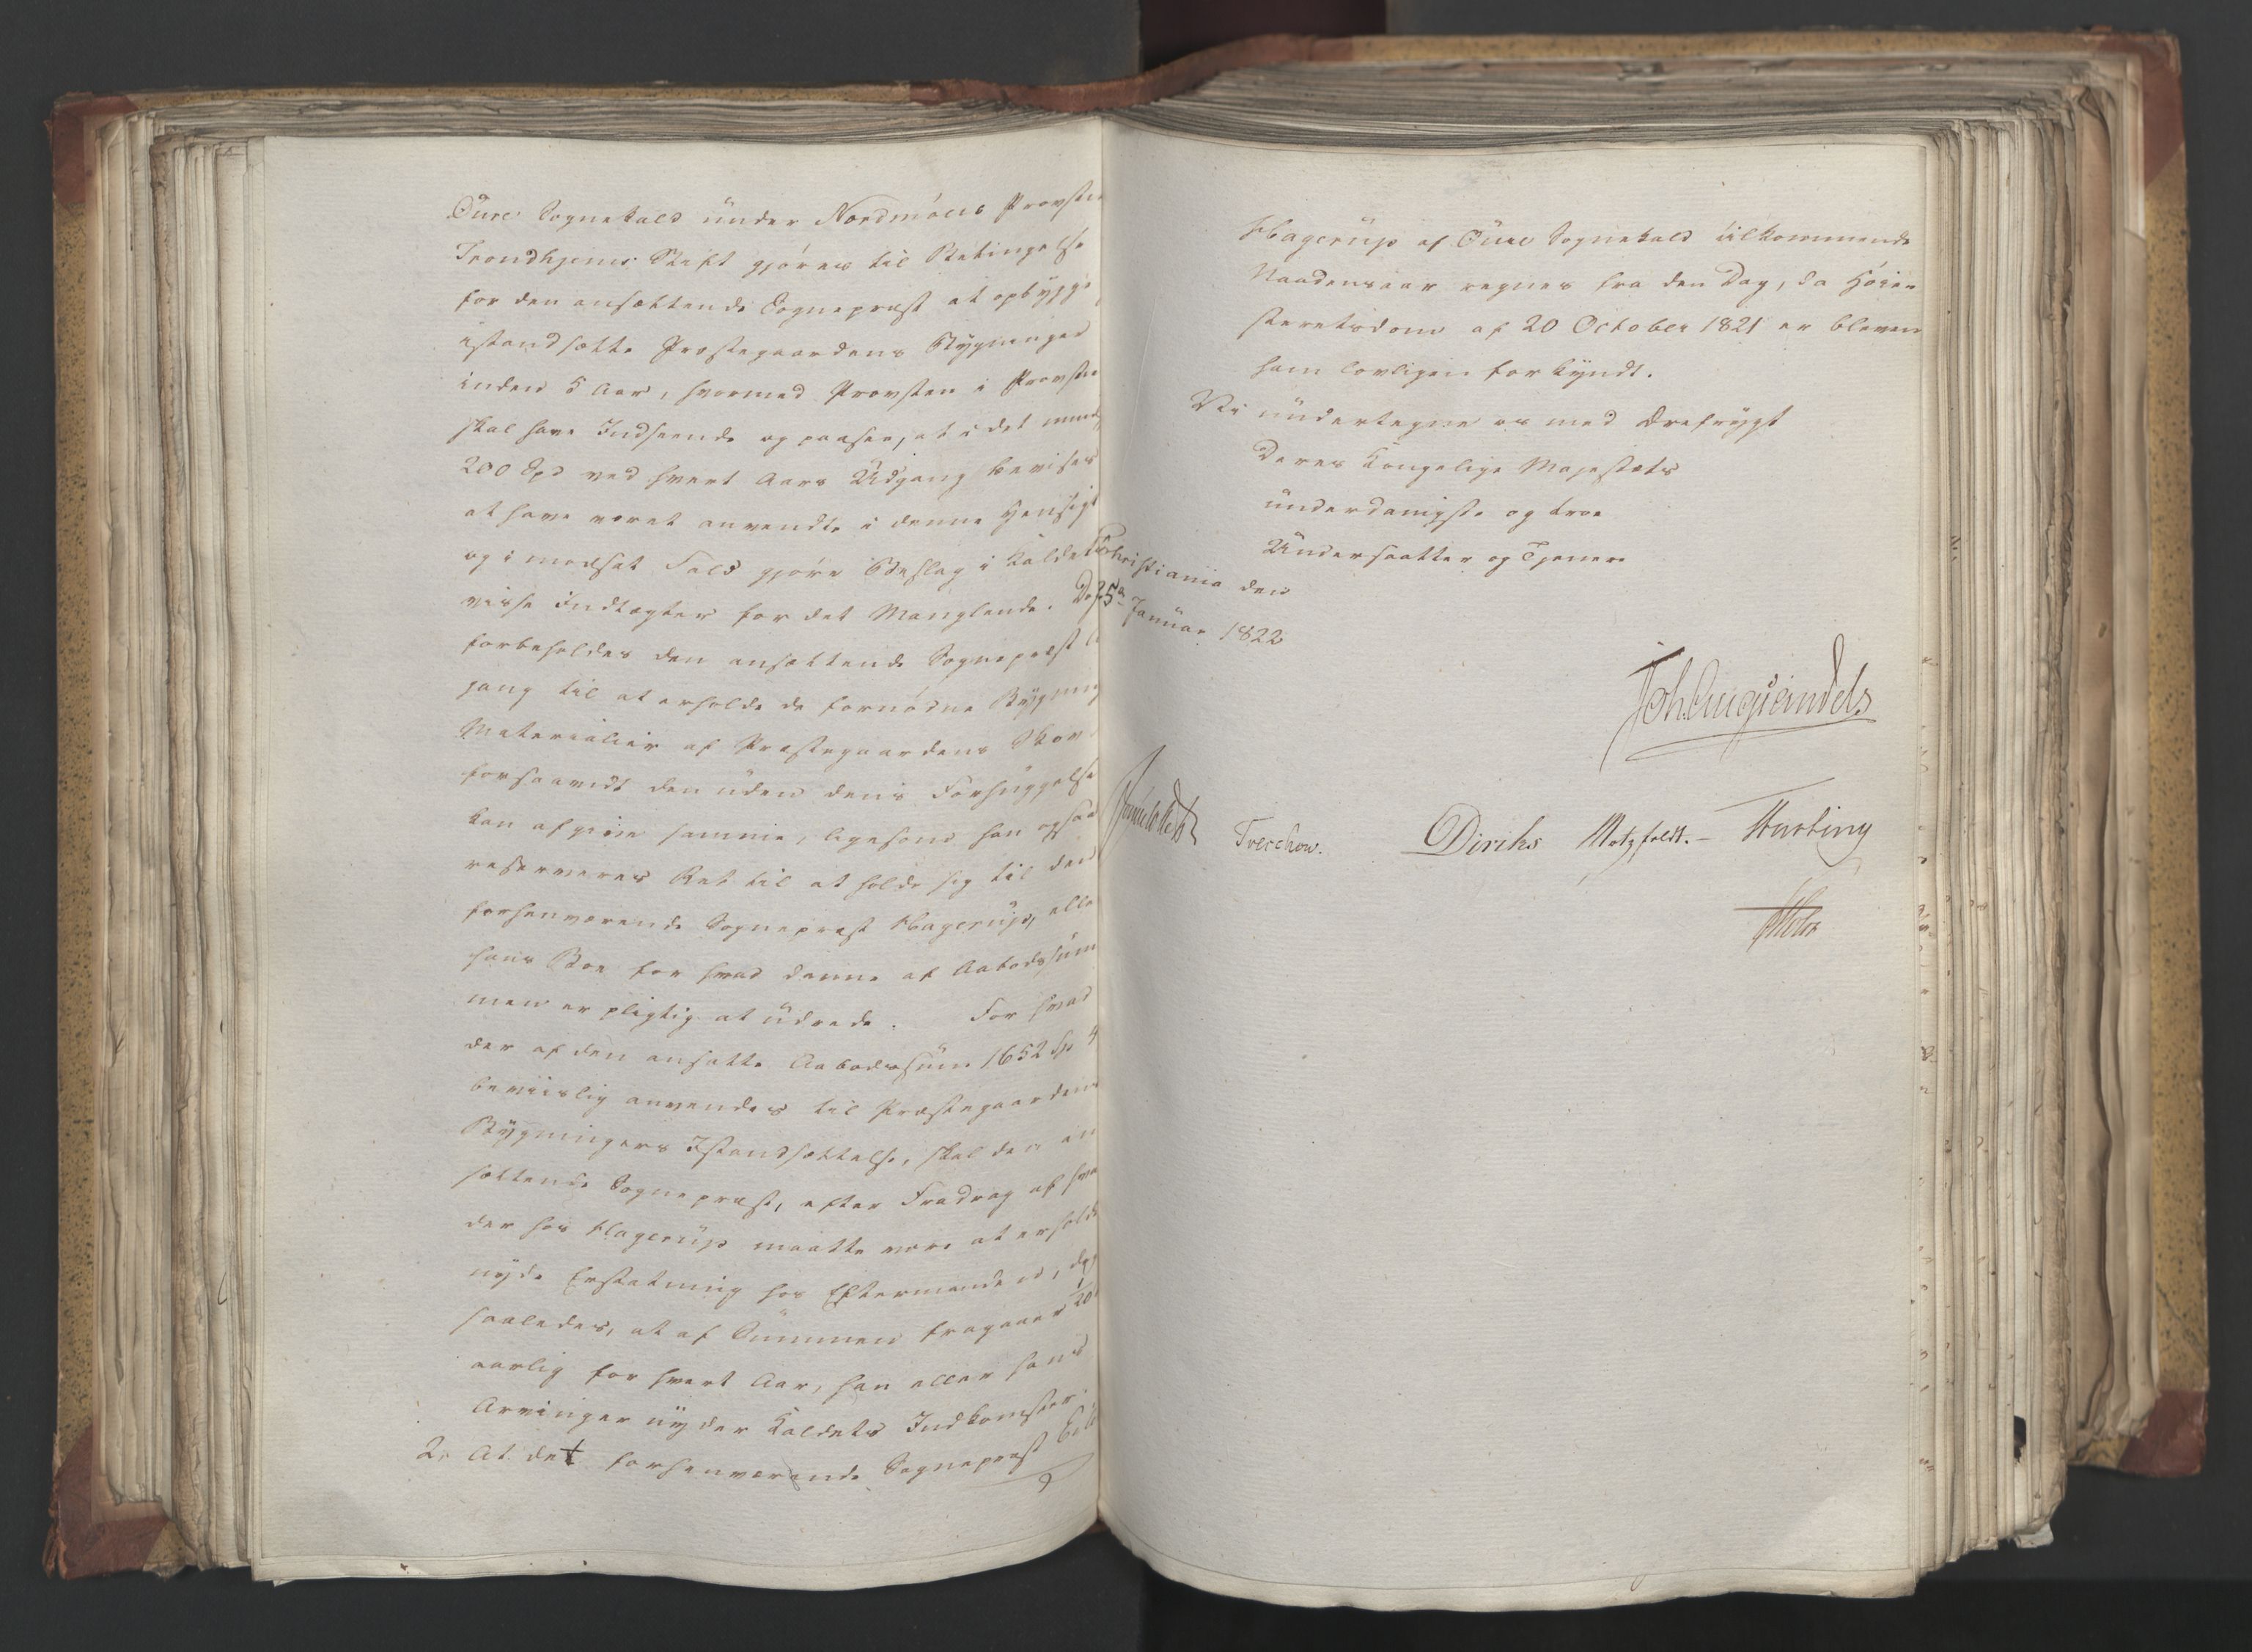 Öure Sognekald under Nordmöers Provstie
Trondhjems Stift gjöres til Betingelse
for den ansættende Sognepræst at opbygge
istandsætte Præstegaardens Bygninger
inden 5 Aar, hvormed Provsten i Provstie
skal have Indseende og paasee, at i det mind
200 Spd ved hvert Aars Udgang bevises
at have været anvendte i denne Hensigt
og i modsat Fald gjöre Beslag i Kaldet
visse Indtægter for det Manglende. Dog
forbeholdes den ansættende Sognepræst A
gang til at erholde de fornödne Bygning
Materialier af Præstegaardens Skov
forsaavidt den uden dens Forhuggelse
kan afgive samme, ligesom han ogsaa
reserveres Ret til at holde sig til den
forhenværende Sognepræst Hagerup, elle
hans Boe for hvad denne af Aabodssum
men er pligtig at udrede. For hvad
der af den ansatte Aabodssum 1652 Sp 4
beviislig anvendes til Præstegaardens
Bygningers Istandsættelse, skal den an
sættende Sognepræst, efter Fradrag af hva
der hos Hagerup maatte være at erholde
nyde Erstatning hos Eftermanden, dog
saaledes, at af Summen fragaaer 1/20
aarlig for hvert Aar, han eller hans
Arvinger nyder Kaldets Indkomster.
2, At det forhenværende Sognepræst
Hagerup af Öure Sognekald tilkommende
Naadensaar regnes fra den Dag, da Höie
steretsdom af 20 October 1821 er bleven
ham lovligen forkyndt.
Vi undertegne os med Ærefrygt
Deres Kongelige Majestæts
underdanigste og troe
Undersaatter og Tjenere
Christiania den
25de Januar 1822
Joh. Aug. Sandels
Treschow. Diriks Motzfeldt. –